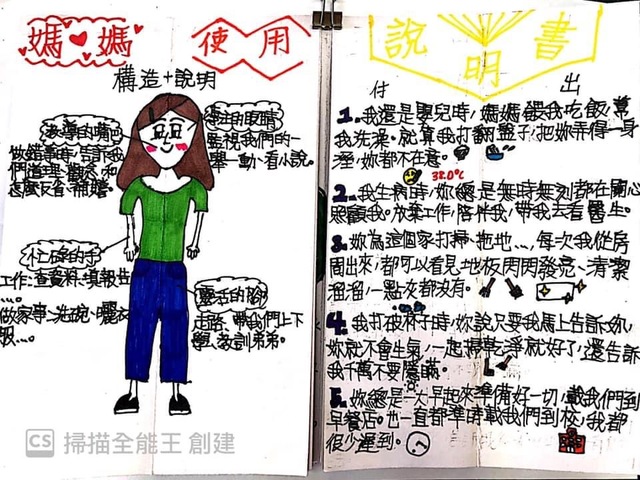 媽媽使用
說明書
構造+說明
教導的嘴巴
做錯事時,告訴我
們道理、觀念、和
怎麼反省、補
的眼睛
監視我們的一
舉一動、看小說。
忙碌的手
工作:查資料、填報
....。
做家事:洗碗、曬衣
服...。
靈活的腳
走路、帶我們上下
學、教訓弟弟。
付 出
1. 我還是嬰兒時,媽媽餵我吃飯,幫
我洗澡。就算我打翻盤子,把妳弄得一身
溼,妳都不在意。
38.0℃
2. 我生病時,妳總是無時無刻都在關心
照顧我。放棄工作,陪伴我,帶我去看醫生。
3. 妳為這個家打掃、拖地...,每次我從房
間出來,都可以看見地板閃閃發亮、清潔
溜溜,一點灰都沒有。
4. 我打破杯子時,妳說只要我馬上告訴妳,
妳就不會生氣,一起掃乾淨就好了,還告訴
我千萬不要隱瞞。
5. 妳總是一大早起來準備好一切,載我們到
早餐店。也一直都準時載我們到校,我都
很少遲到。
CS 掃描全能王 創建